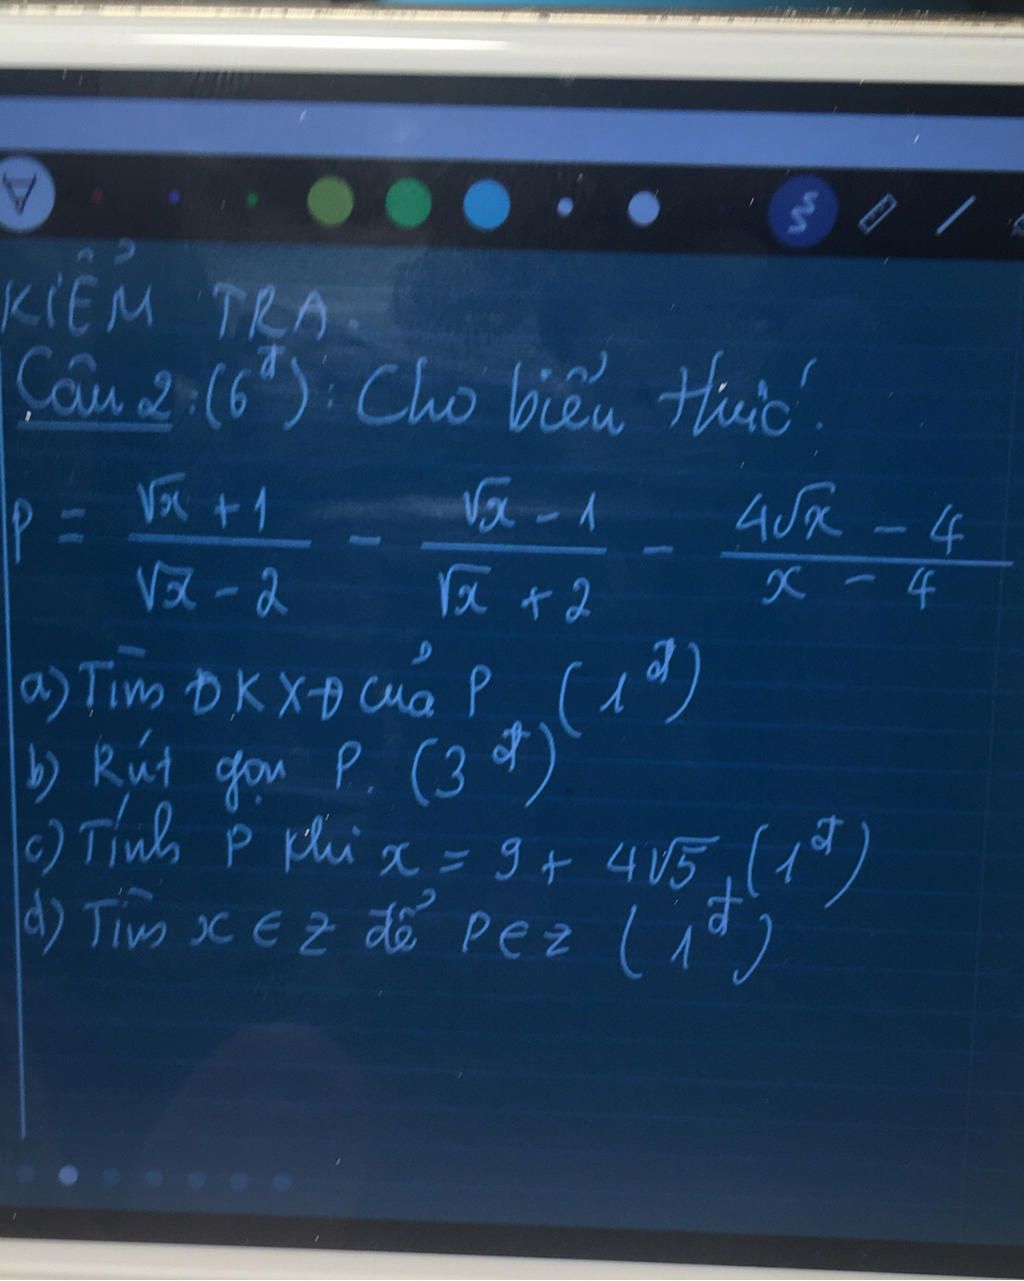 KIỂM TRA.
Câu 2: (6đ): Cho biểu thức.
P = (√x + 1)/(√x - 2) - (√x - 1)/(√x + 2) - (4√x - 4)/(x - 4)
a) Tìm ĐKXĐ của P (1đ)
b) Rút gọn P. (3đ)
c) Tính P khi x = 9 + 4√5 (1đ)
d) Tìm x ∈ Z để P ∈ Z (1đ)